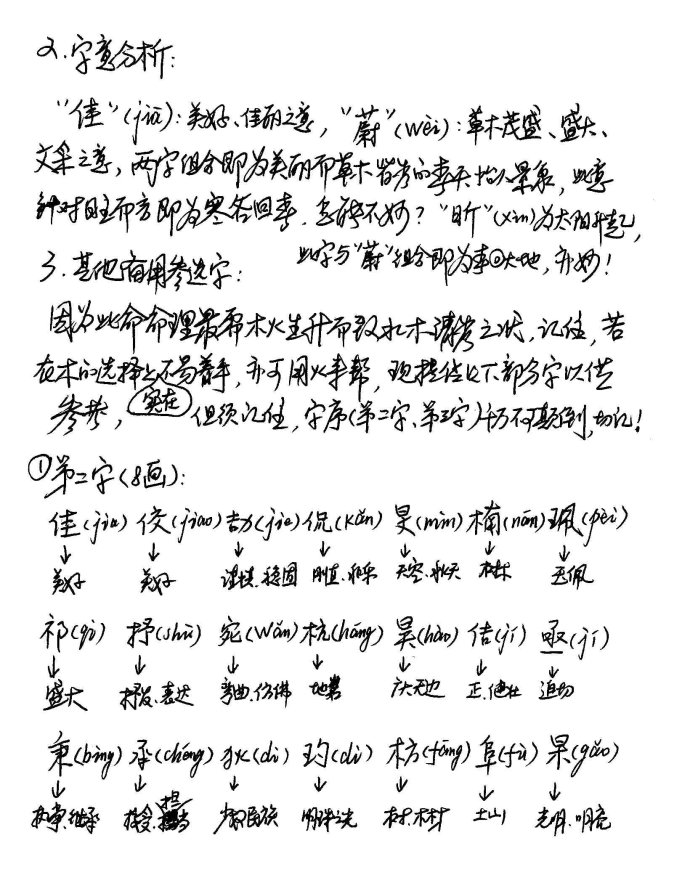 2.字意分析:
"佳"(jiā):美好、佳丽之意,"蔚"(wèi):草木茂盛、盛大、
文采之意,两字组合即为美丽而草木皆秀的春天地人景象,此意
针对日主而言即为寒冬回春.怎能不妙?"昕"(xīn)为太阳升起,
此字与"蔚"组合即为春回大地,亦妙!
3.其他简用参选字:
因为此命命理最需木火生升而致水木清秀之状,记住,若
在木的选择上不易着手,亦可用火来帮,现提供以下部分字以供
参考,(实在)但须记住,字序(第二字、第三字)千万不可颠倒,切记!
①第二字(8画):
佳(jiā) 佼(jiǎo) 劼(jié) 侃(kǎn) 旻(mín) 楠(nán) 珮(pèi)
↓ ↓ ↓ ↓ ↓ ↓ ↓
美好 美好 谨慎.稳固 刚直.和乐 天空.秋天 树木 玉佩
祁(qí) 抒(shū) 宛(wǎn) 杭(háng) 昊(hào) 佶(jí) 亟(jí)
↓ ↓ ↓ ↓ ↓ ↓ ↓
盛大 抒发.表达 弯曲.仿佛 地名 广大无边 正.健壮 迫切
秉(bǐng) 承(chéng) 狄(dí) 玓(dì) 枋(fāng) 阜(fù) 杲(gǎo)
↓ ↓ ↓ ↓ ↓ ↓ ↓
执掌.继承 少数民族 明珠之光 木材.木樹 土山 光明.明亮